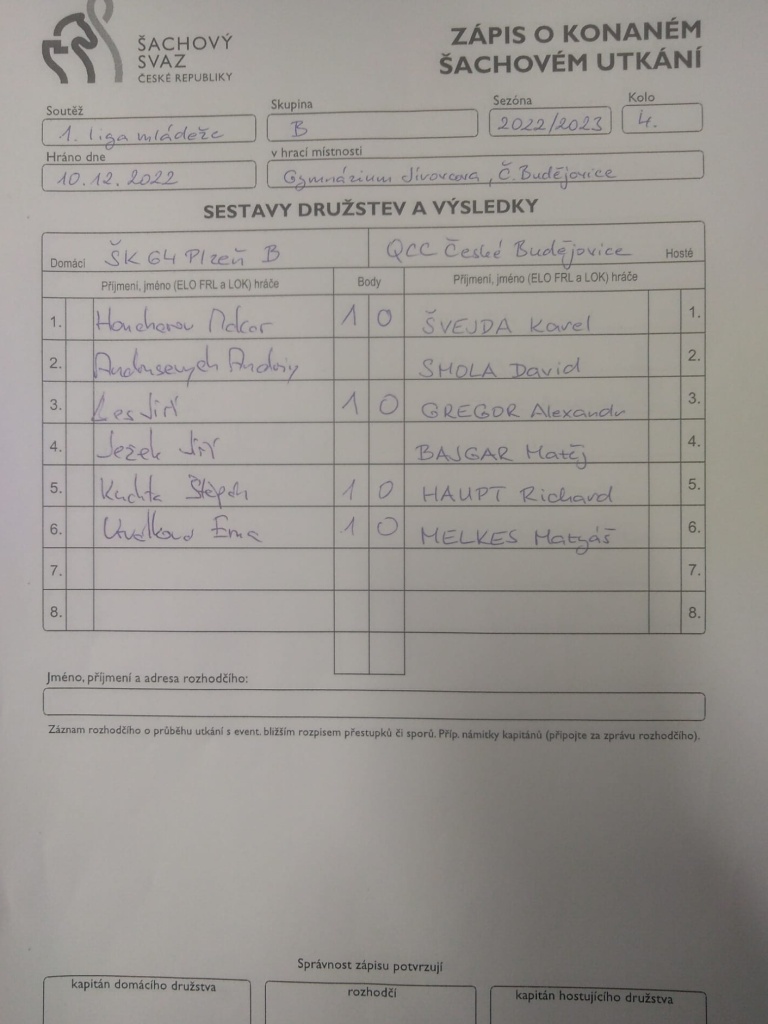 ŠACHOVÝ
SVAZ
ČESKÉ REPUBLIKY
ZÁPIS O KONANÉM
ŠACHOVÉM UTKÁNÍ
Soutěž Skupina Sezóna Kolo
1. liga mládeže B 2022/2023 4.
Hráno dne v hrací místnosti
10.12.2022 Gymnázium Jírovcova, Č. Budějovice
SESTAVY DRUŽSTEV A VÝSLEDKY
Domácí ŠK 64 Plzeň B QCC České Budějovice Hosté
Příjmení, jméno (ELO FRL a LOK) hráče Body Příjmení, jméno (ELO FRL a LOK) hráče
1. 1 0 ŠVEJDA Karel 1.
2. SMOLA David 2.
3. Les Jiří 1 0 GREGOR Alexandr 3.
4. Ježek Jiří BAJGAR Matěj 4.
5. Kuchta Štěpán 1 0 HAUPT Richard 5.
6. Ema 1 0 MELKES Matyáš 6.
7. 7.
8. 8.
Jméno, příjmení a adresa rozhodčího:
Záznam rozhodčího o průběhu utkání s event. bližším rozpisem přestupků či sporů. Příp. námitky kapitánů (připojte za zprávu rozhodčího).
Správnost zápisu potvrzují
kapitán domácího družstva rozhodčí kapitán hostujícího družstva